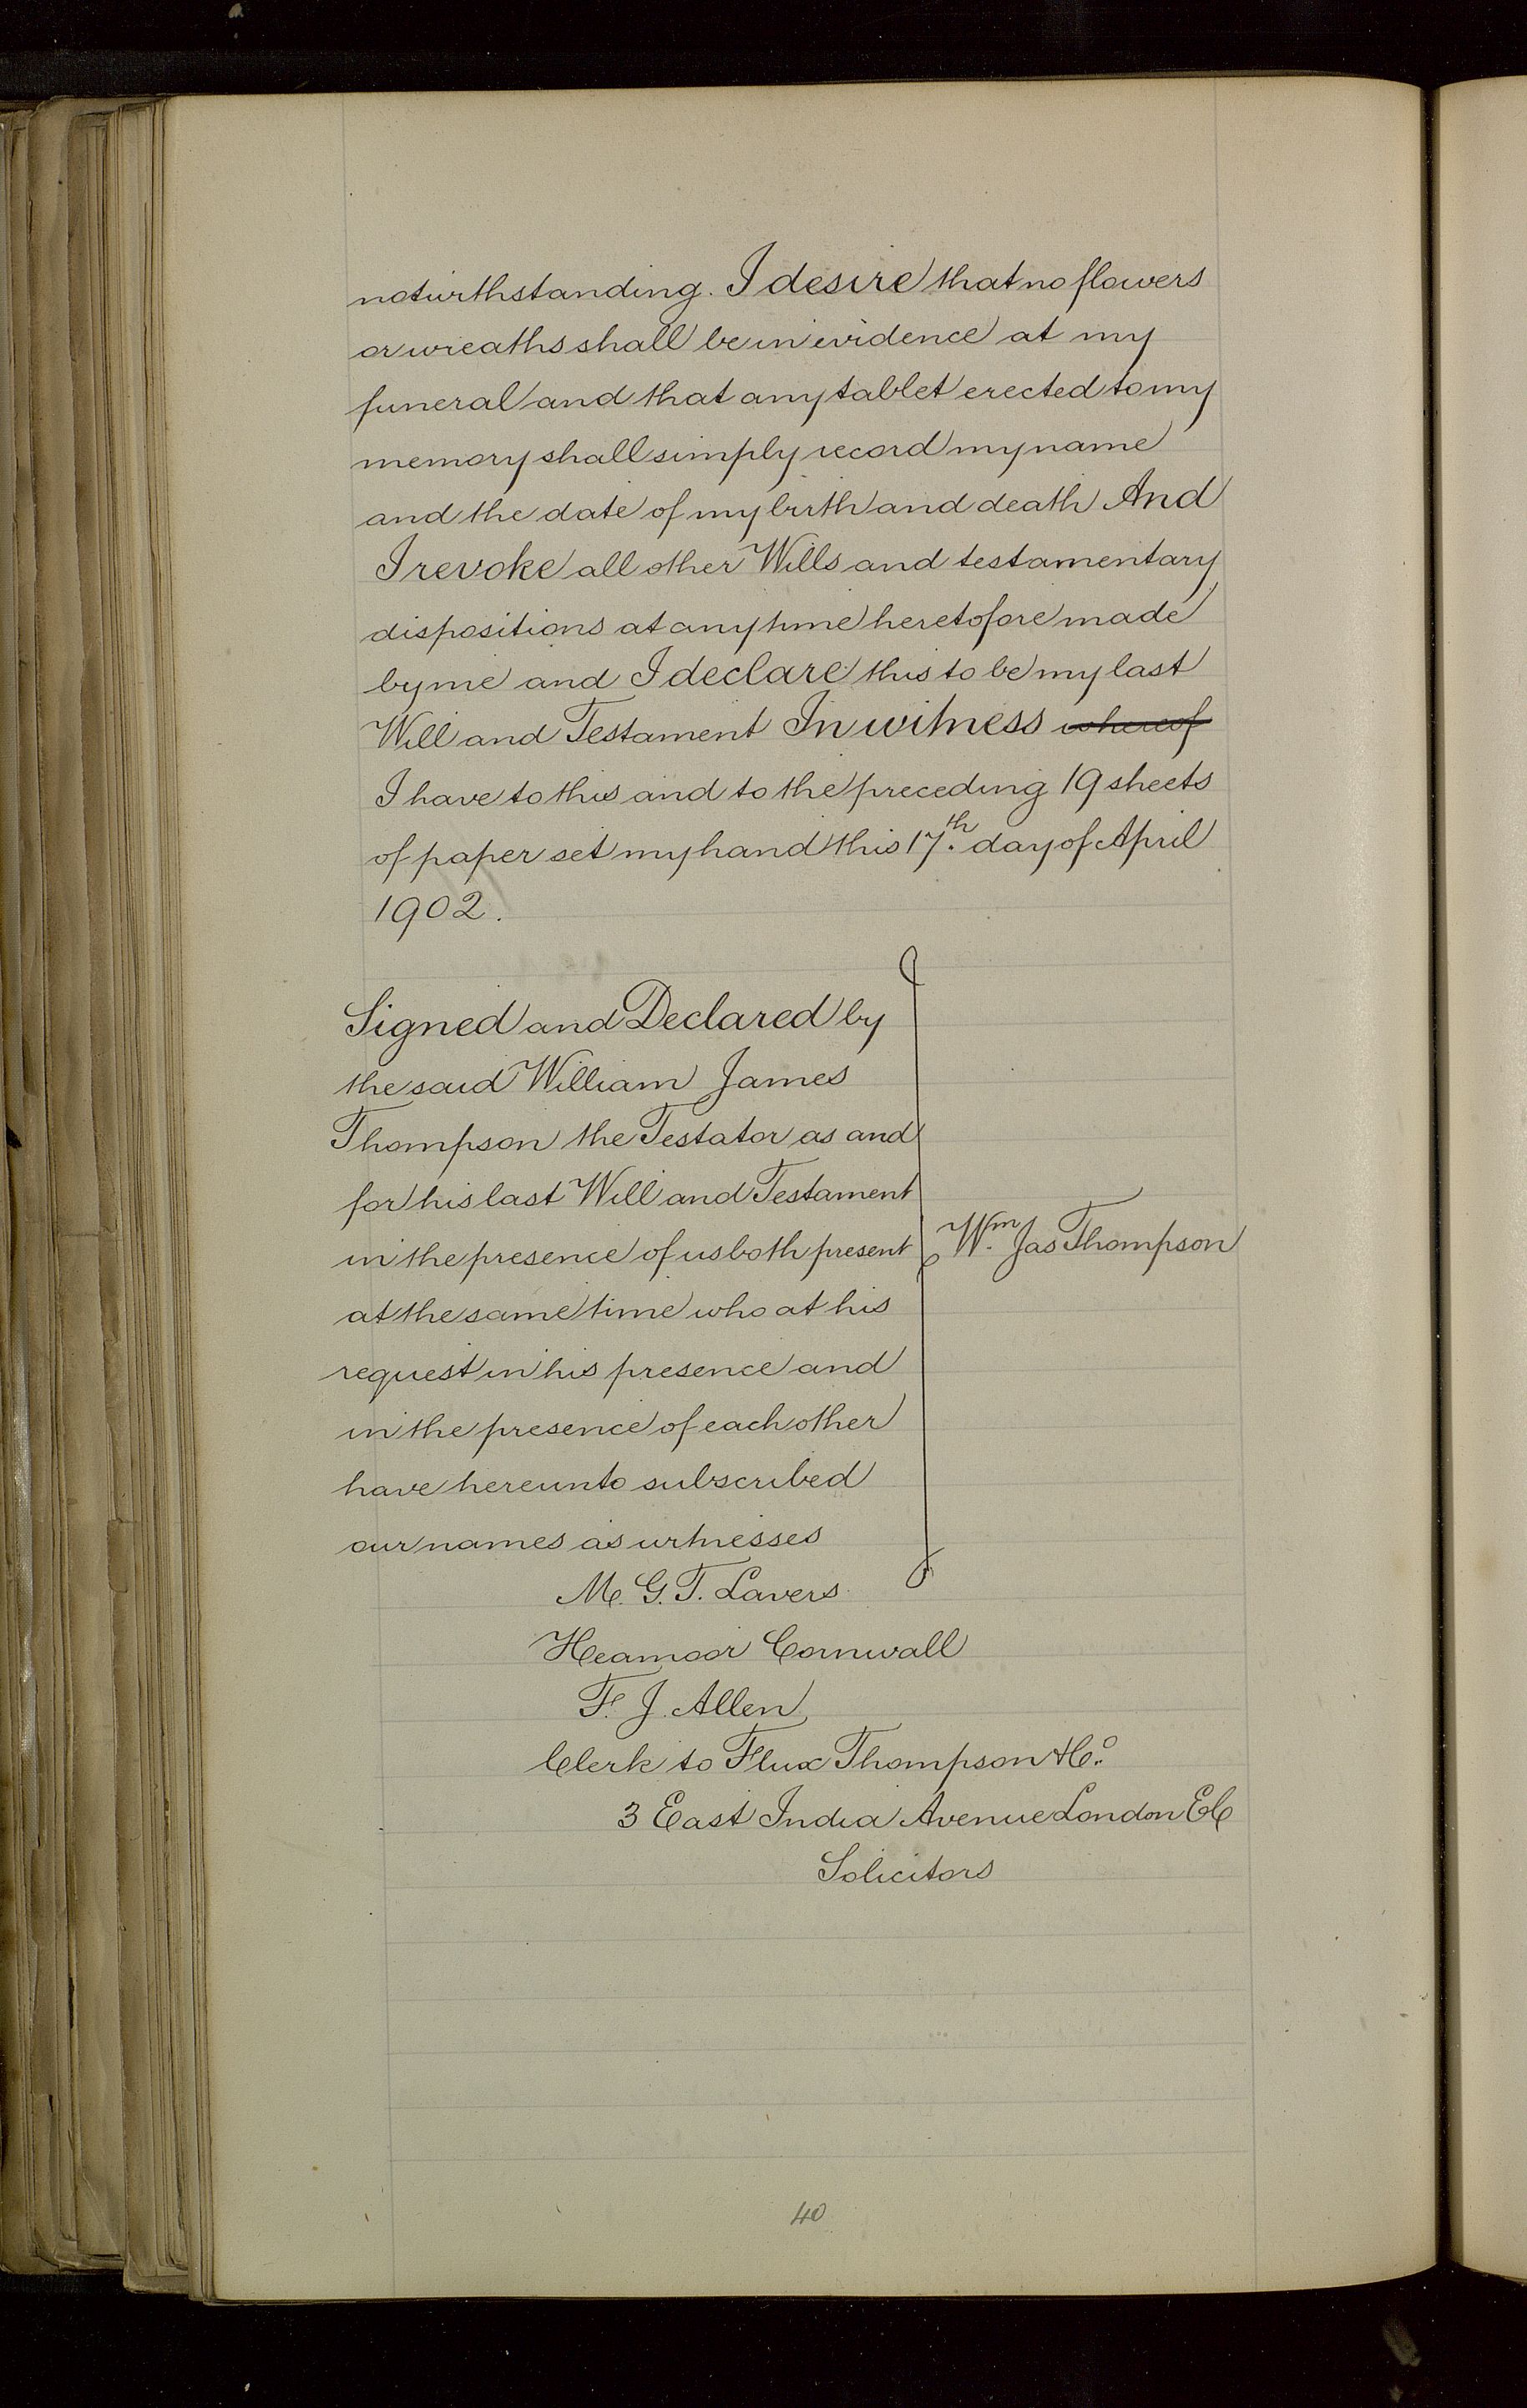 notwithstanding. I desire that no flowers
or wreaths shall be in evidence at my
funeral and that any tablet erected to my
memory shall simply record my name
and the date of my birth and death And
I revoke all other Wills and testamentary
dispositions at any time heretofore made
by me and I declare this to be my last
Will and Testament In witness whereof
I have to this and to the preceding 19 sheets
of paper set my hand this 17th. day of April
1902.
Signed and Declared by
the said William James
Thompson the Testator as and
for his last Will and Testament
in the presence of us both present
at the same time who at his
request in his presence and
in the presence of each other
have hereunto subscribed
our names as witnesses
Wm. Jas Thompson
M. G. T. Lavers
Heamoor Cornwall
F. J. Allen
Clerk to Flux Thompson & Co.
3 East India Avenue London EC
Solicitors
40